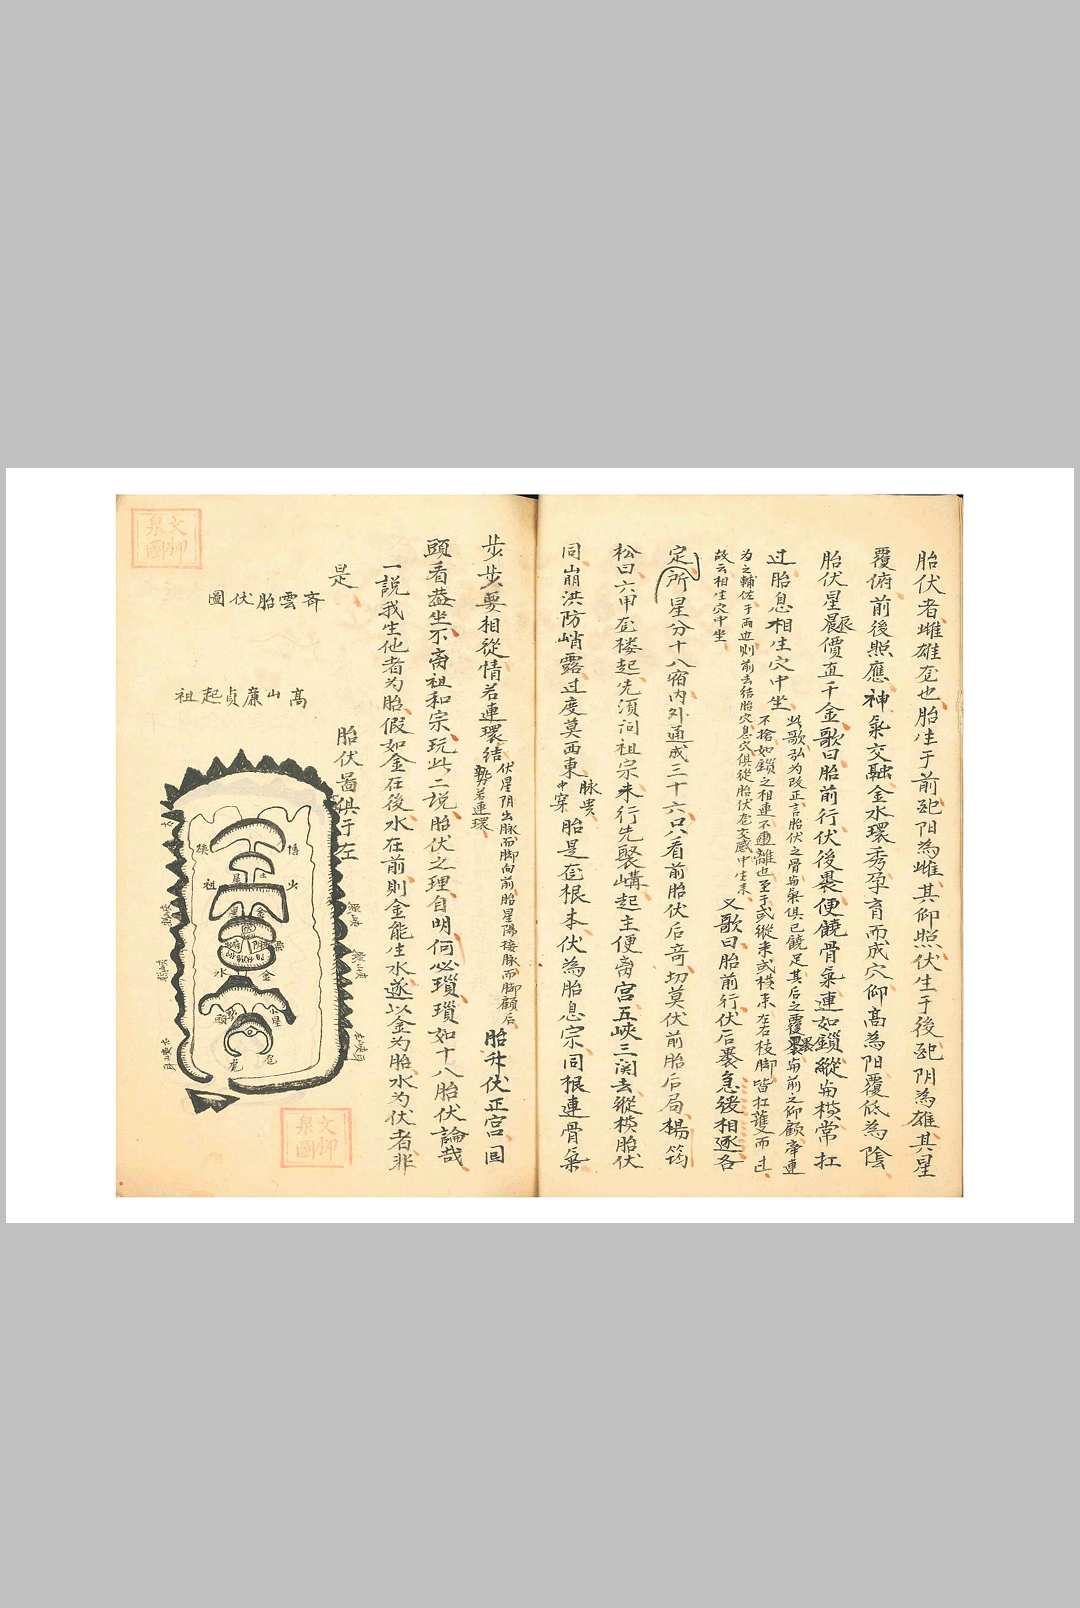 胎伏者雌雄也胎生于前阳為雌其仰照伏生于後阴為雄其星
覆俯前後照應神氣交融金水環秀孕育而成穴仰高為阳覆低為陰
胎伏星辰價直千金歌曰胎前行伏後裹便饒骨氣連如鎖縱與横常扛
过胎息相生穴中坐
此歌弘为改正言胎伏之骨與氣俱已饒足其后之覆裹與前之仰顧牵連
不捨如鎖之相連不離也至于或縱来或横来左右枝脚皆扛護而过
為之輔佐于两边则前去结胎穴息穴俱從胎伏交感中生来
故云相生穴中坐
又歌曰胎前行伏后裹急後相逐各
定所星分十八宿内外通成三十六只看前胎伏后奇切莫伏前胎后局楊筠
松曰六甲楼起先須问祖宗未行先聚講起主便為宫五峡三関去縱横胎伏
同崩洪防峭露过度莫西東
脉贵
中案
胎是根本伏為胎息宗同根連骨氣
步步要相從情若連環结
伏星阴出脉而脚向前胎星陽接脉而脚顧后
勢若連環
胎升伏正宫回
頭看盖坐不离祖和宗玩此二说胎伏之理自明何必瑣瑣如十八胎伏論哉
一說我生他者为胎假如金在後水在前則金能生水遂以金为胎水为伏者非
是
胎伏圖俱于左
齐雲胎伏圖
高山廉贞起祖
文卿
泉圖
文卿
泉圖